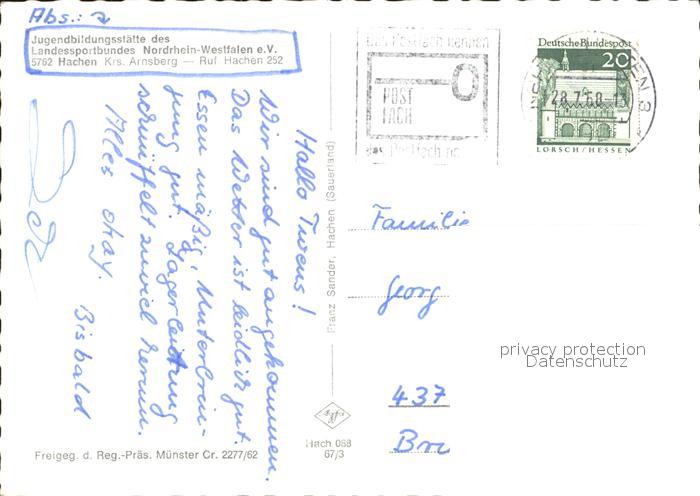 Abs.:
Jugendbildungsstätte des
Landessportbundes Nordrhein-Westfalen e.V.
5762 Hachen Krs. Arnsberg — Ruf Hachen 252
Hallo Twens!
Wir sind gut angekommen.
Das Wetter ist leidlich gut.
Essen mäßig, Unterbrin-
gung gut. Lagerleitung
schnüffelt zuviel herum.
Alles okay.
Bisbald
Freigeg. d. Reg.-Präs. Münster Cr. 2277/62
Franz Sander, Hachen (Sauerland)
Agfa
Hach 088
67/3
das Postfach kennen
POST
FACH
Postfach
Deutsche Bundespost
20
28.7.68
LORSCH/HESSEN
Familie
Georg
437
privacy protection
Datenschutz